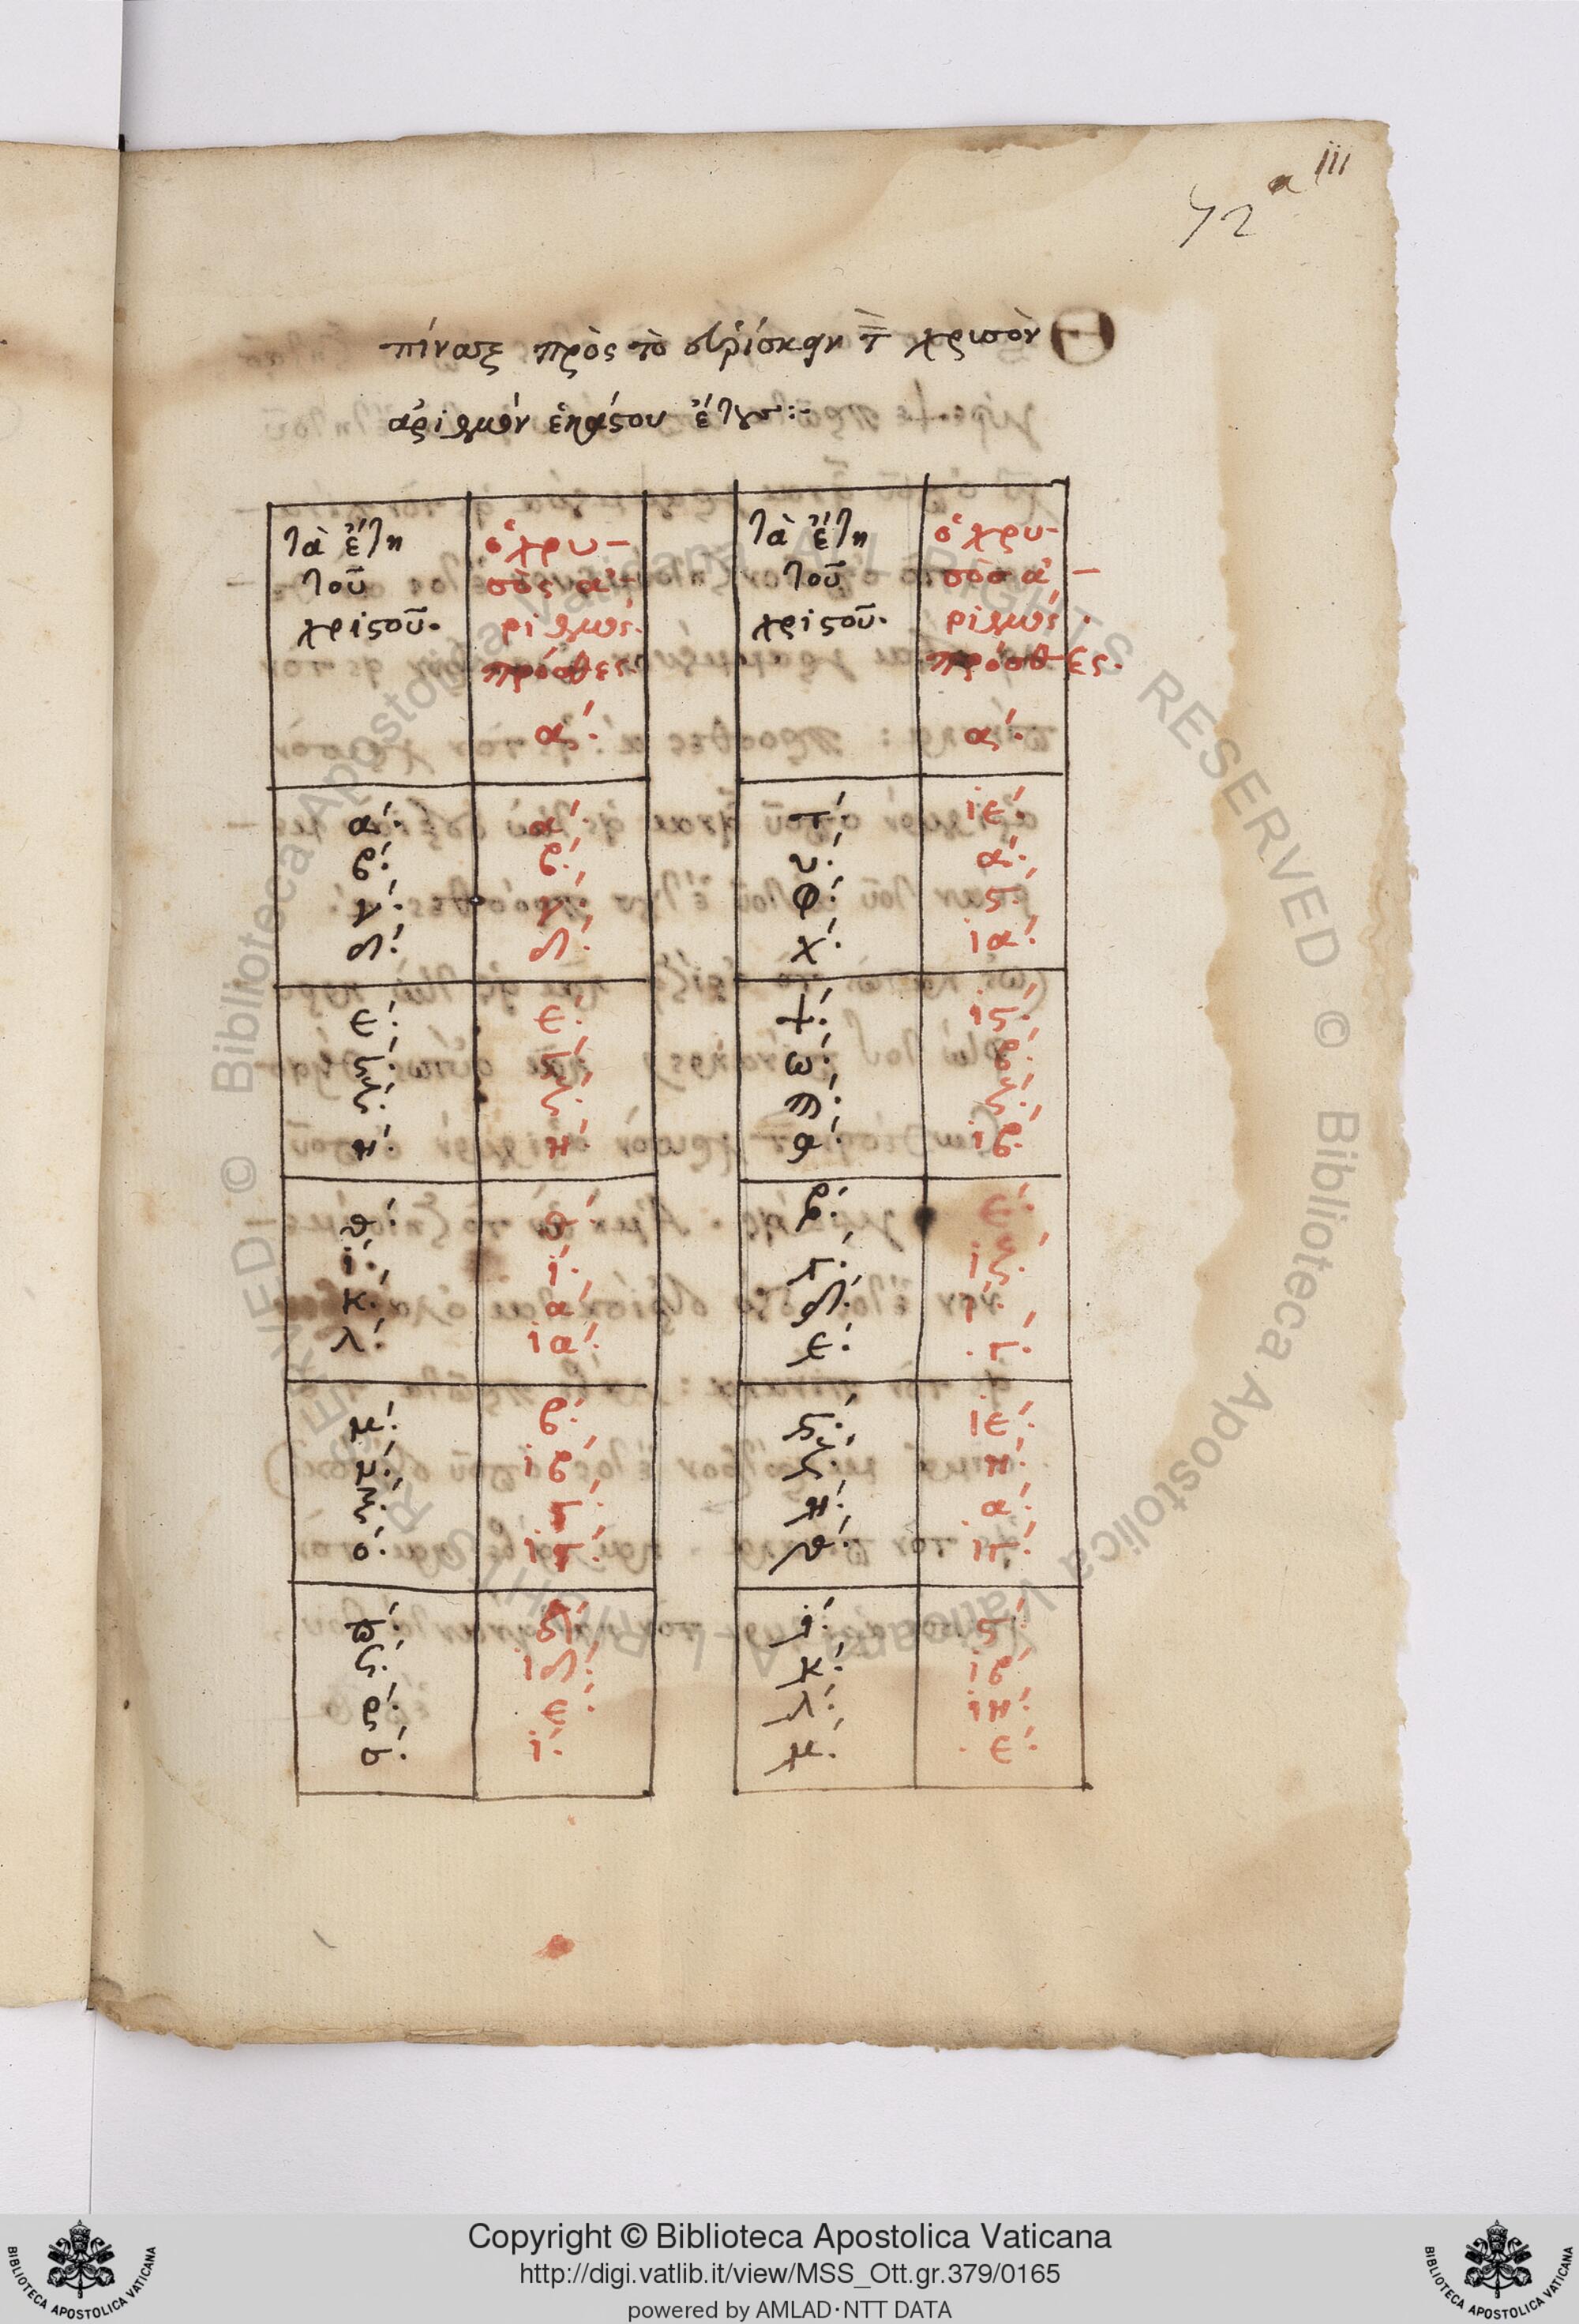 72 a III
πίναξ πρὸς τὸ εὑρίσκειν τ χρισὸν
ἀριθμὸν ἑκάστου ἔτους:-
τὰ ἔτη ὁ χρυ- τὰ ἔτη ὁ χρυ-
τοῦ σὸς ἀ- τοῦ σὸσ ἀ-
χριστοῦ. ριθμός. χριστοῦ. ριθμός.
πρόσθες. πρόσθες.
α΄. α΄.
α΄. α΄. τ΄. ιε΄.
β΄. β΄. υ΄. α΄.
γ΄. γ΄. φ΄. ς΄.
δ΄. δ΄. χ΄. ια΄.
ε΄. ε΄. ψ΄. ις΄.
ς΄. ς΄. ω΄. β΄.
ζ΄. ζ΄. ϡ΄. ζ΄.
η΄. η΄. ͵α΄. ιβ΄.
θ΄. θ΄. ͵β΄. ε΄.
ι΄. ι΄. ͵γ΄. ιζ΄.
κ΄. α΄. ͵δ΄. ι΄.
λ΄. ια΄. ͵ε΄. γ΄.
μ΄. β΄. ͵ς΄. ιε΄.
ν΄. ιβ΄. ͵ζ΄. η΄.
ξ΄. γ΄. ͵η΄. α΄.
ο΄. ιγ΄. ͵θ΄. ιγ΄.
π΄. δ΄. ͵ι΄. ς΄.
ϟ΄. ιδ΄. ͵κ΄. ιβ΄.
ρ΄. ε΄. ͵λ΄. ιη΄.
σ΄. ι΄. ͵μ΄. ε΄.
© Biblioteca Apostolica Vaticana ALL RIGHTS RESERVED © Biblioteca Apostolica Vaticana ALL RIGHTS RESERVED
Copyright © Biblioteca Apostolica Vaticana
http://digi.vatlib.it/view/MSS_Ott.gr.379/0165
powered by AMLAD·NTT DATA
BIBLIOTECA APOSTOLICA VATICANA
BIBLIOTECA APOSTOLICA VATICANA